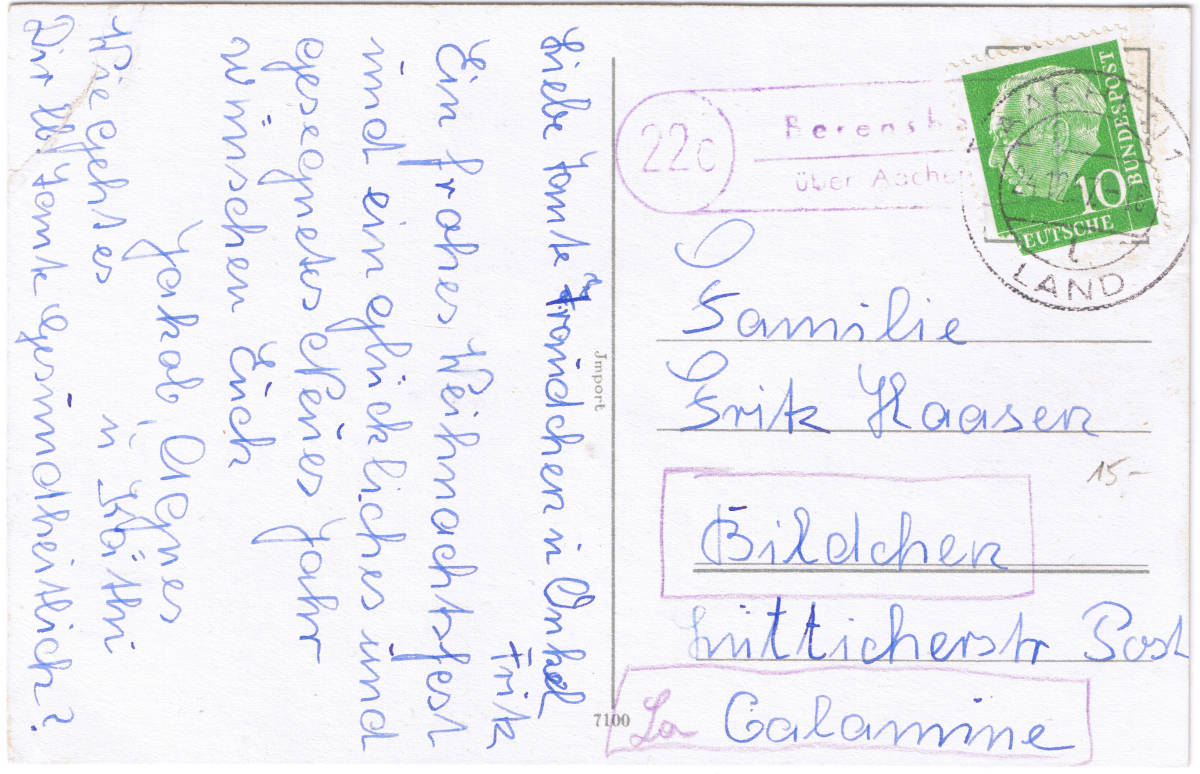 Liebe Tante Traudchen u Onkel
Fritz
Ein frohes Weihnachtsfest
und ein glückliches und
gesegnetes Neues Jahr
wünschen Euch
Jakob, Agnes
u. Käthi
Wie geht es
Dir lb. Tante gesundheitlich?
Import
7100
22c
Berensb
über Aachen
10
DEUTSCHE
BUNDESPOST
LAND
1
Familie
Fritz Haasen
15-
Bildchen
Lütticherstr Post
La Calamine